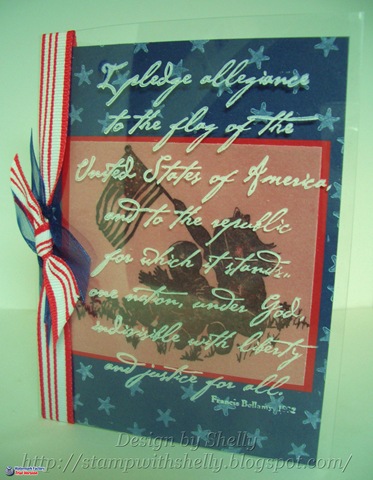 I pledge allegiance
to the flag of the
United States of America,
and to the republic
for which it stands,
one nation, under God,
indivisible with liberty
and justice for all.
Francis Bellamy, 1892
Design by Shelly
http://stampwithshelly.blogspot.com/